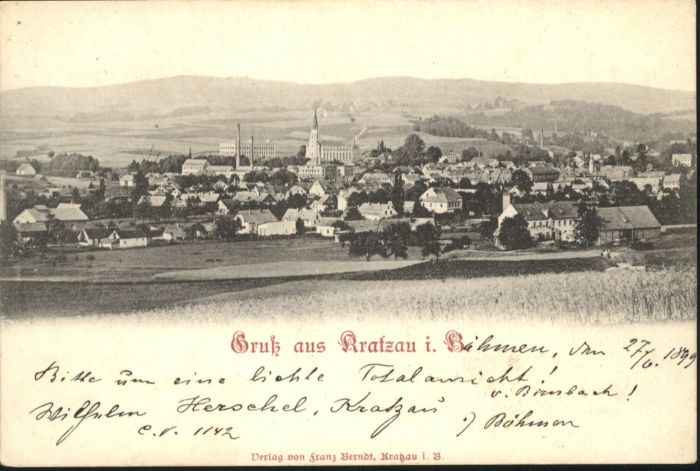 Gruß aus Kratzau i. Böhmen, den 27/6. 1899
Bitte um eine lichte Totalansicht!
v. Birnsbach!
Wilhelm Herschel, Kratzau
:) Böhmen
C.V. 1142
Verlag von Franz Berndt, Kratzau i. B.